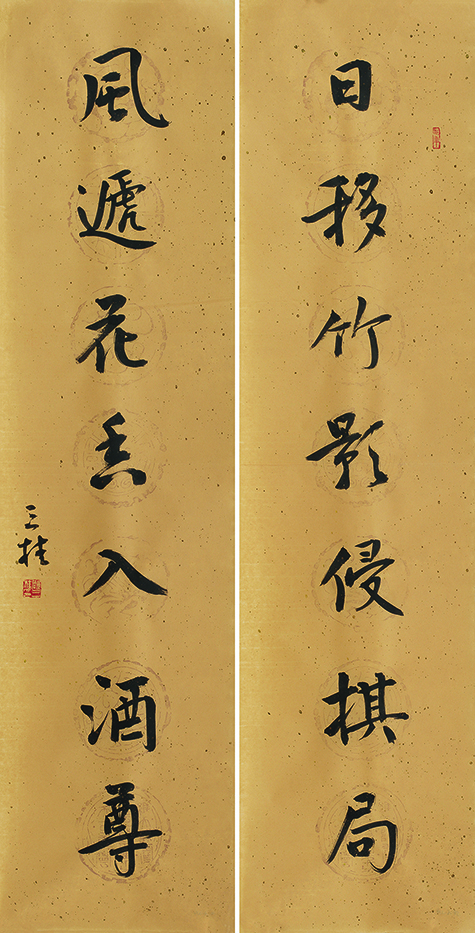 日移竹影侵棋局
風遞花香入酒尊
三桂